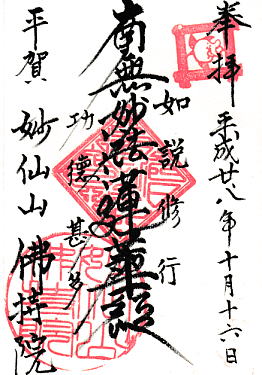 奉拝
平成廿八年十月十六日
如説修行
南無妙法蓮華経
功徳甚多
平賀
妙仙山
佛持院